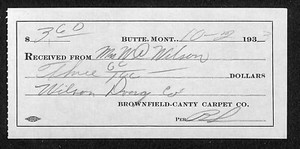 $ 3 60 BUTTE, MONT. 10-2 193
RECEIVED FROM Mrs W D Wilson
Three 60/100 DOLLARS
Wilson Drug Co
BROWNFIELD-CANTY CARPET CO.
PER